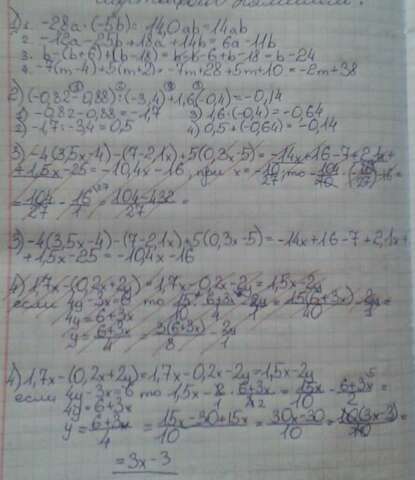 1) 1. -28a · (-5b) = 14,0ab = 14ab
2. -12a - 25b + 18a + 14b = 6a - 11b
3. b - (b + 6) + (b - 18) = b - b - 6 + b - 18 = b - 24
4. -7(m - 4) + 5(m + 2) = -7m + 28 + 5m + 10 = -2m + 38
2) (-0,82 - 0,88) : (-3,4) + 1,6 · (-0,4) = -0,14
1) -0,82 - 0,88 = -1,7 3) 1,6 · (-0,4) = -0,64
2) -1,7 : -3,4 = 0,5 4) 0,5 + (-0,64) = -0,14
3) -4(3,5x - 4) - (7 - 2,1x) + 5(0,3x - 5) = -14x + 16 - 7 + 2,1x +
+ 1,5x - 25 = -10,4x - 16, при x =
= 104/27 - 16/1 = 104 - 432/27 =
3) -4(3,5x - 4) - (7 - 2,1x) + 5(0,3x - 5) = -14x + 16 - 7 + 2,1x +
+ 1,5x - 25 = -10,4x - 16
4) 1,7x - (0,2x + 2y) = 1,7x - 0,2x - 2y = 1,5x - 2y
если 4y - 3x = 6 то
4y = 6 + 3x
y = 6 + 3x/4
4) 1,7x - (0,2x + 2y) = 1,7x - 0,2x - 2y = 1,5x - 2y
если 4y - 3x = 6 то 1,5x - 2/1 · 6 + 3x/4 2 = 15x/10 - 6 + 3x/2 5 =
4y = 6 + 3x
y = 6 + 3x/4 = 15x - 30 + 15x/10 = 30x - 30/10 = 10(3x - 3)/10 =
= 3x - 3